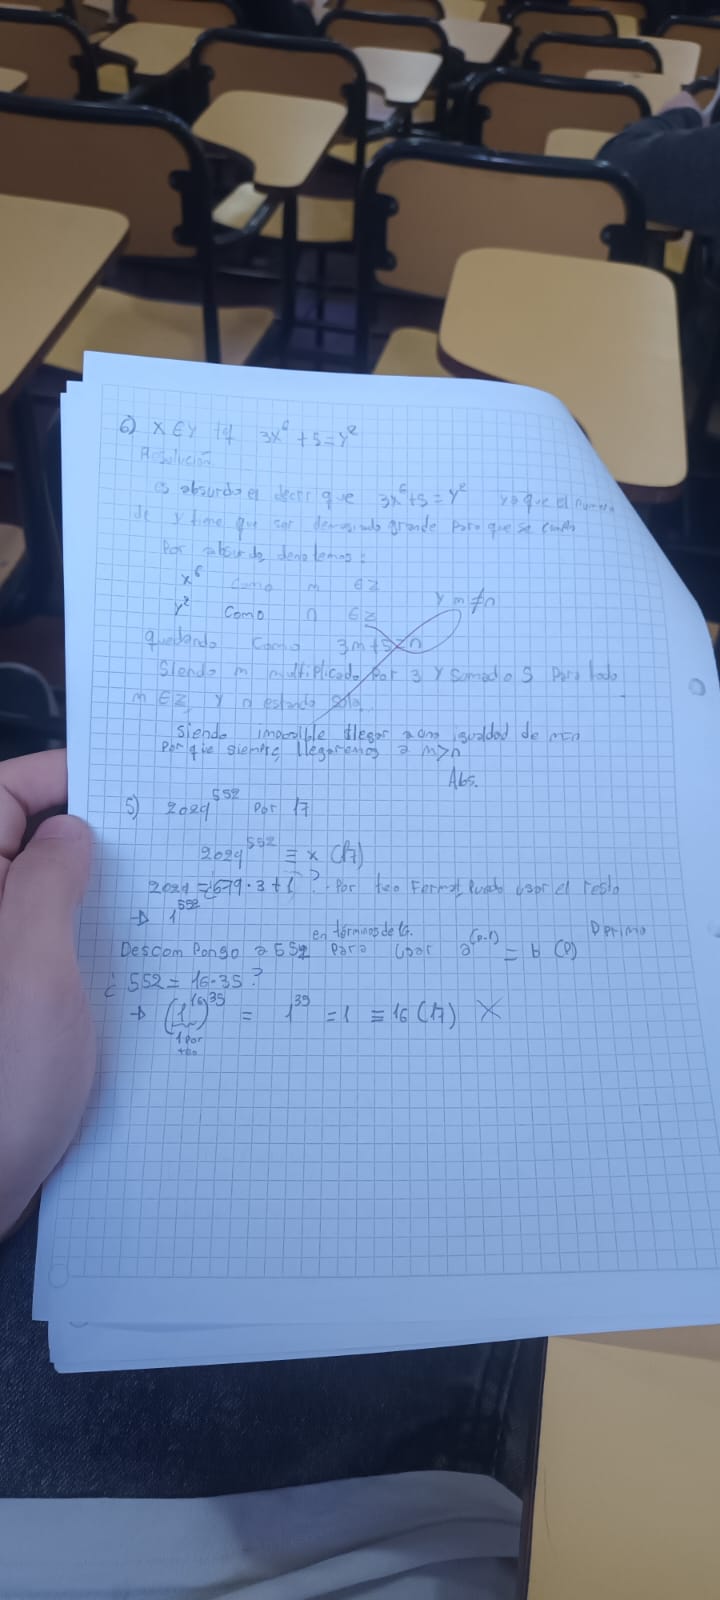 6) x ∈ y tq 3x⁶ + 5 = y²
Resolución
es absurdo el decir que 3x⁶+5 = y² ya que el numero
de y tiene que ser demasiado grande para que se
Por absurdo denotemos:
x⁶ como m ∈ Z
y² como n ∈ Z y m ≠ n
quedando como 3m+5=n
Siendo m multiplicado por 3 y sumado 5 para todo
m ∈ Z, y n estando solo
siendo imposible llegar a una igualdad de m=n
porque siempre llegaremos a m>n
Abs.
5) 2024⁵⁵² por 17
2024⁵⁵² ≡ x (17)
? Por teo Fermat puedo usar el resto
→ 1⁵⁵²
en términos de 16. p primo
Descompongo a 552 para usar a⁽ᵖ⁻¹⁾ = b (p)
¿ 552 = 16·35 ?
→ (1¹⁶)³⁵ = 1³⁵ = 1 ≡ 16 (17) X
1 por
teo